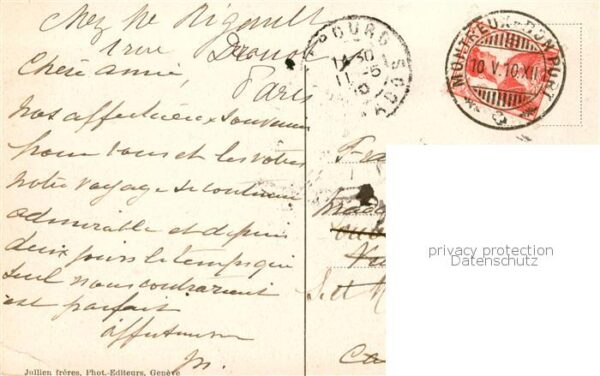 Chez Me Rigault
1 rue Drouot
Paris
Chère amie,
nos affectueux souvenirs
pour vous et les vôtres
notre voyage se continue
admirable et depuis
deux jours le temps qui
seul nous contrariait
est parfait
affectueuse
M.
BOURG
14 30
11 - 5
10
ADOS
MONTREUX-BON PORT
10 V.10 XII
Fra
S. et M
privacy protection
Datenschutz
Jullien frères, Phot.-Editeurs, Genève